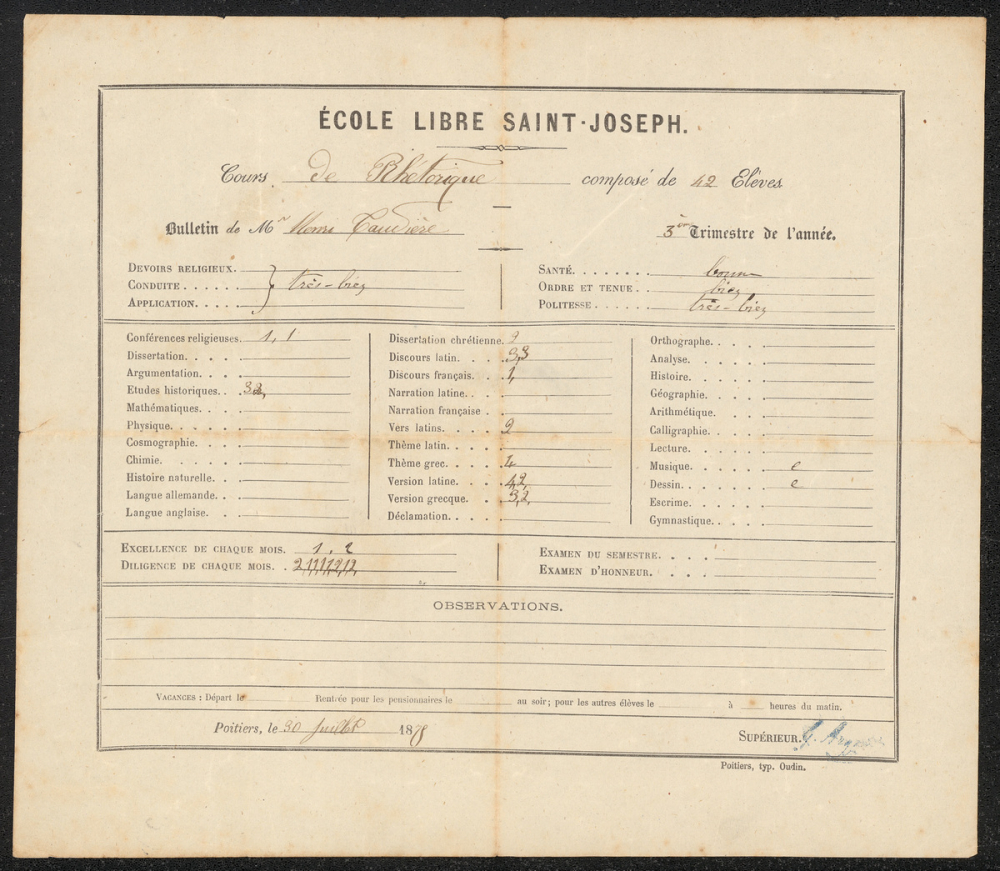 ÉCOLE LIBRE SAINT-JOSEPH.
Cours de Rhétorique composé de 42 Elèves
Bulletin de Mr Henri Taudière 3e Trimestre de l'année.
DEVOIRS RELIGIEUX.
CONDUITE. . . . . très-bien
APPLICATION. . . . .
SANTÉ. . . . . . . bonne
ORDRE ET TENUE . . bien
POLITESSE . . . . . . très-bien
Conférences religieuses. 1, 1
Dissertation. . . .
Argumentation. . . .
Etudes historiques. . 32,
Mathématiques. . .
Physique. . . . .
Cosmographie. . . .
Chimie. . . . . .
Histoire naturelle. . .
Langue allemande. . .
Langue anglaise. . .
Dissertation chrétienne. 2
Discours latin. . . . 3,3
Discours français. . . 1,
Narration latine. . .
Narration française . .
Vers latins. . . . . 2
Thème latin. . . . .
Thème grec. . . . . 4
Version latine. . . . 4,2,
Version grecque. . . . 3,2,
Déclamation. . . . .
Orthographe. . . . .
Analyse. . . . . .
Histoire. . . . . .
Géographie. . . . .
Arithmétique. . . .
Calligraphie. . . . .
Lecture. . . . . .
Musique. . . . . . e
Dessin. . . . . . e
Escrime. . . . . .
Gymnastique. . . . .
EXCELLENCE DE CHAQUE MOIS. 1, 2
DILIGENCE DE CHAQUE MOIS. . 2,1,1,1,1,2,1,2,
EXAMEN DU SEMESTRE. . . .
EXAMEN D'HONNEUR. . . .
OBSERVATIONS.
VACANCES : Départ le Rentrée pour les pensionnaires le au soir; pour les autres élèves le à heures du matin.
Poitiers, le 30 Juillet 1878
SUPÉRIEUR.
Poitiers, typ. Oudin.